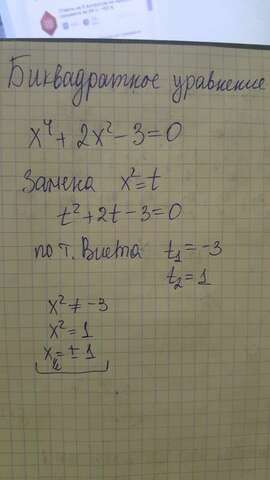 Биквадратное уравнение
x⁴ + 2x² - 3 = 0
Замена x² = t
t² + 2t - 3 = 0
по т. Виета t₁ = -3
t₂ = 1
x² ≠ -3
x² = 1
x = ± 1